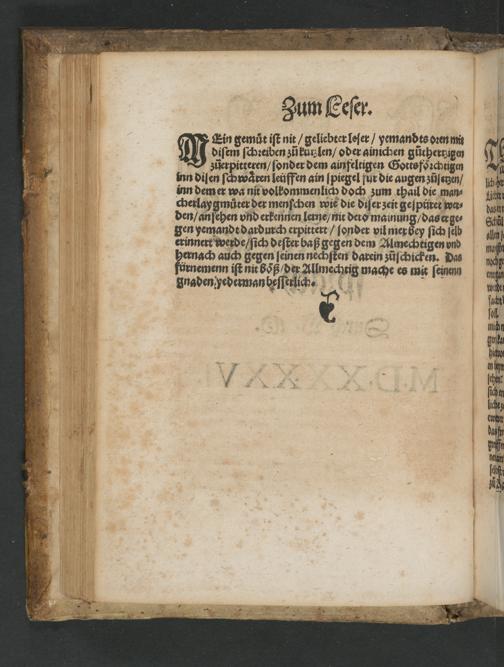 Zum Leser.
MEin gemüt ist nit / geliebter leser / yemandts oren mit
disem schreiben zůkutzlen / oder ainichen gůthertzigen
zůerpitteren / sonder dem ainfeltigen Gottsförchtigen
inn disen schwären leüffen ain spiegel für die augen zůsetzen /
inn dem er wa nit volkommenlich doch zum thail die man-
cherlay gmüter der menschen wie die diser zeit gespüret wer-
den / ansehen vnd erkennen lerne / nit deto mainung / das er ge-
gen yemandt dardurch erpittert / sonder vil mer bey sich selb
erinnert werde / sich dester baß gegen dem Almechtigen vnd
hernach auch gegen seinen nechsten darein zůschicken. Das
fürnemenn ist nit böß / der Allmechtig mache es mit seinenn
gnaden, yederman besserlich.